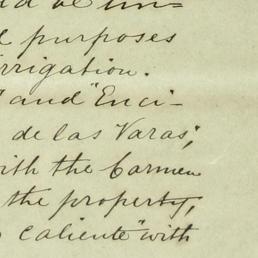 purposes
irrigation.
" and "Enci-
de las Varas",
with the Carmen
the property,
caliente" with